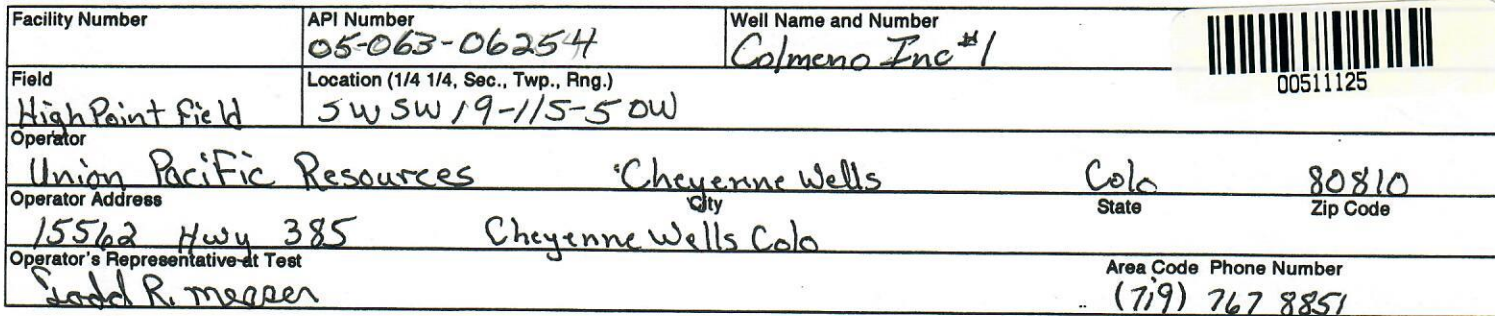 Facility Number API Number Well Name and Number
05-063-06254 Colmeno Inc #1
00511125
Field Location (1/4 1/4, Sec., Twp., Rng.)
High Point Field SWSW 19-11S-50W
Operator
Union Pacific Resources Cheyenne Wells Colo 80810
Operator Address City State Zip Code
15562 Hwy 385 Cheyenne Wells Colo
Operator's Representative at Test Area Code Phone Number
R. (719) 767 8851